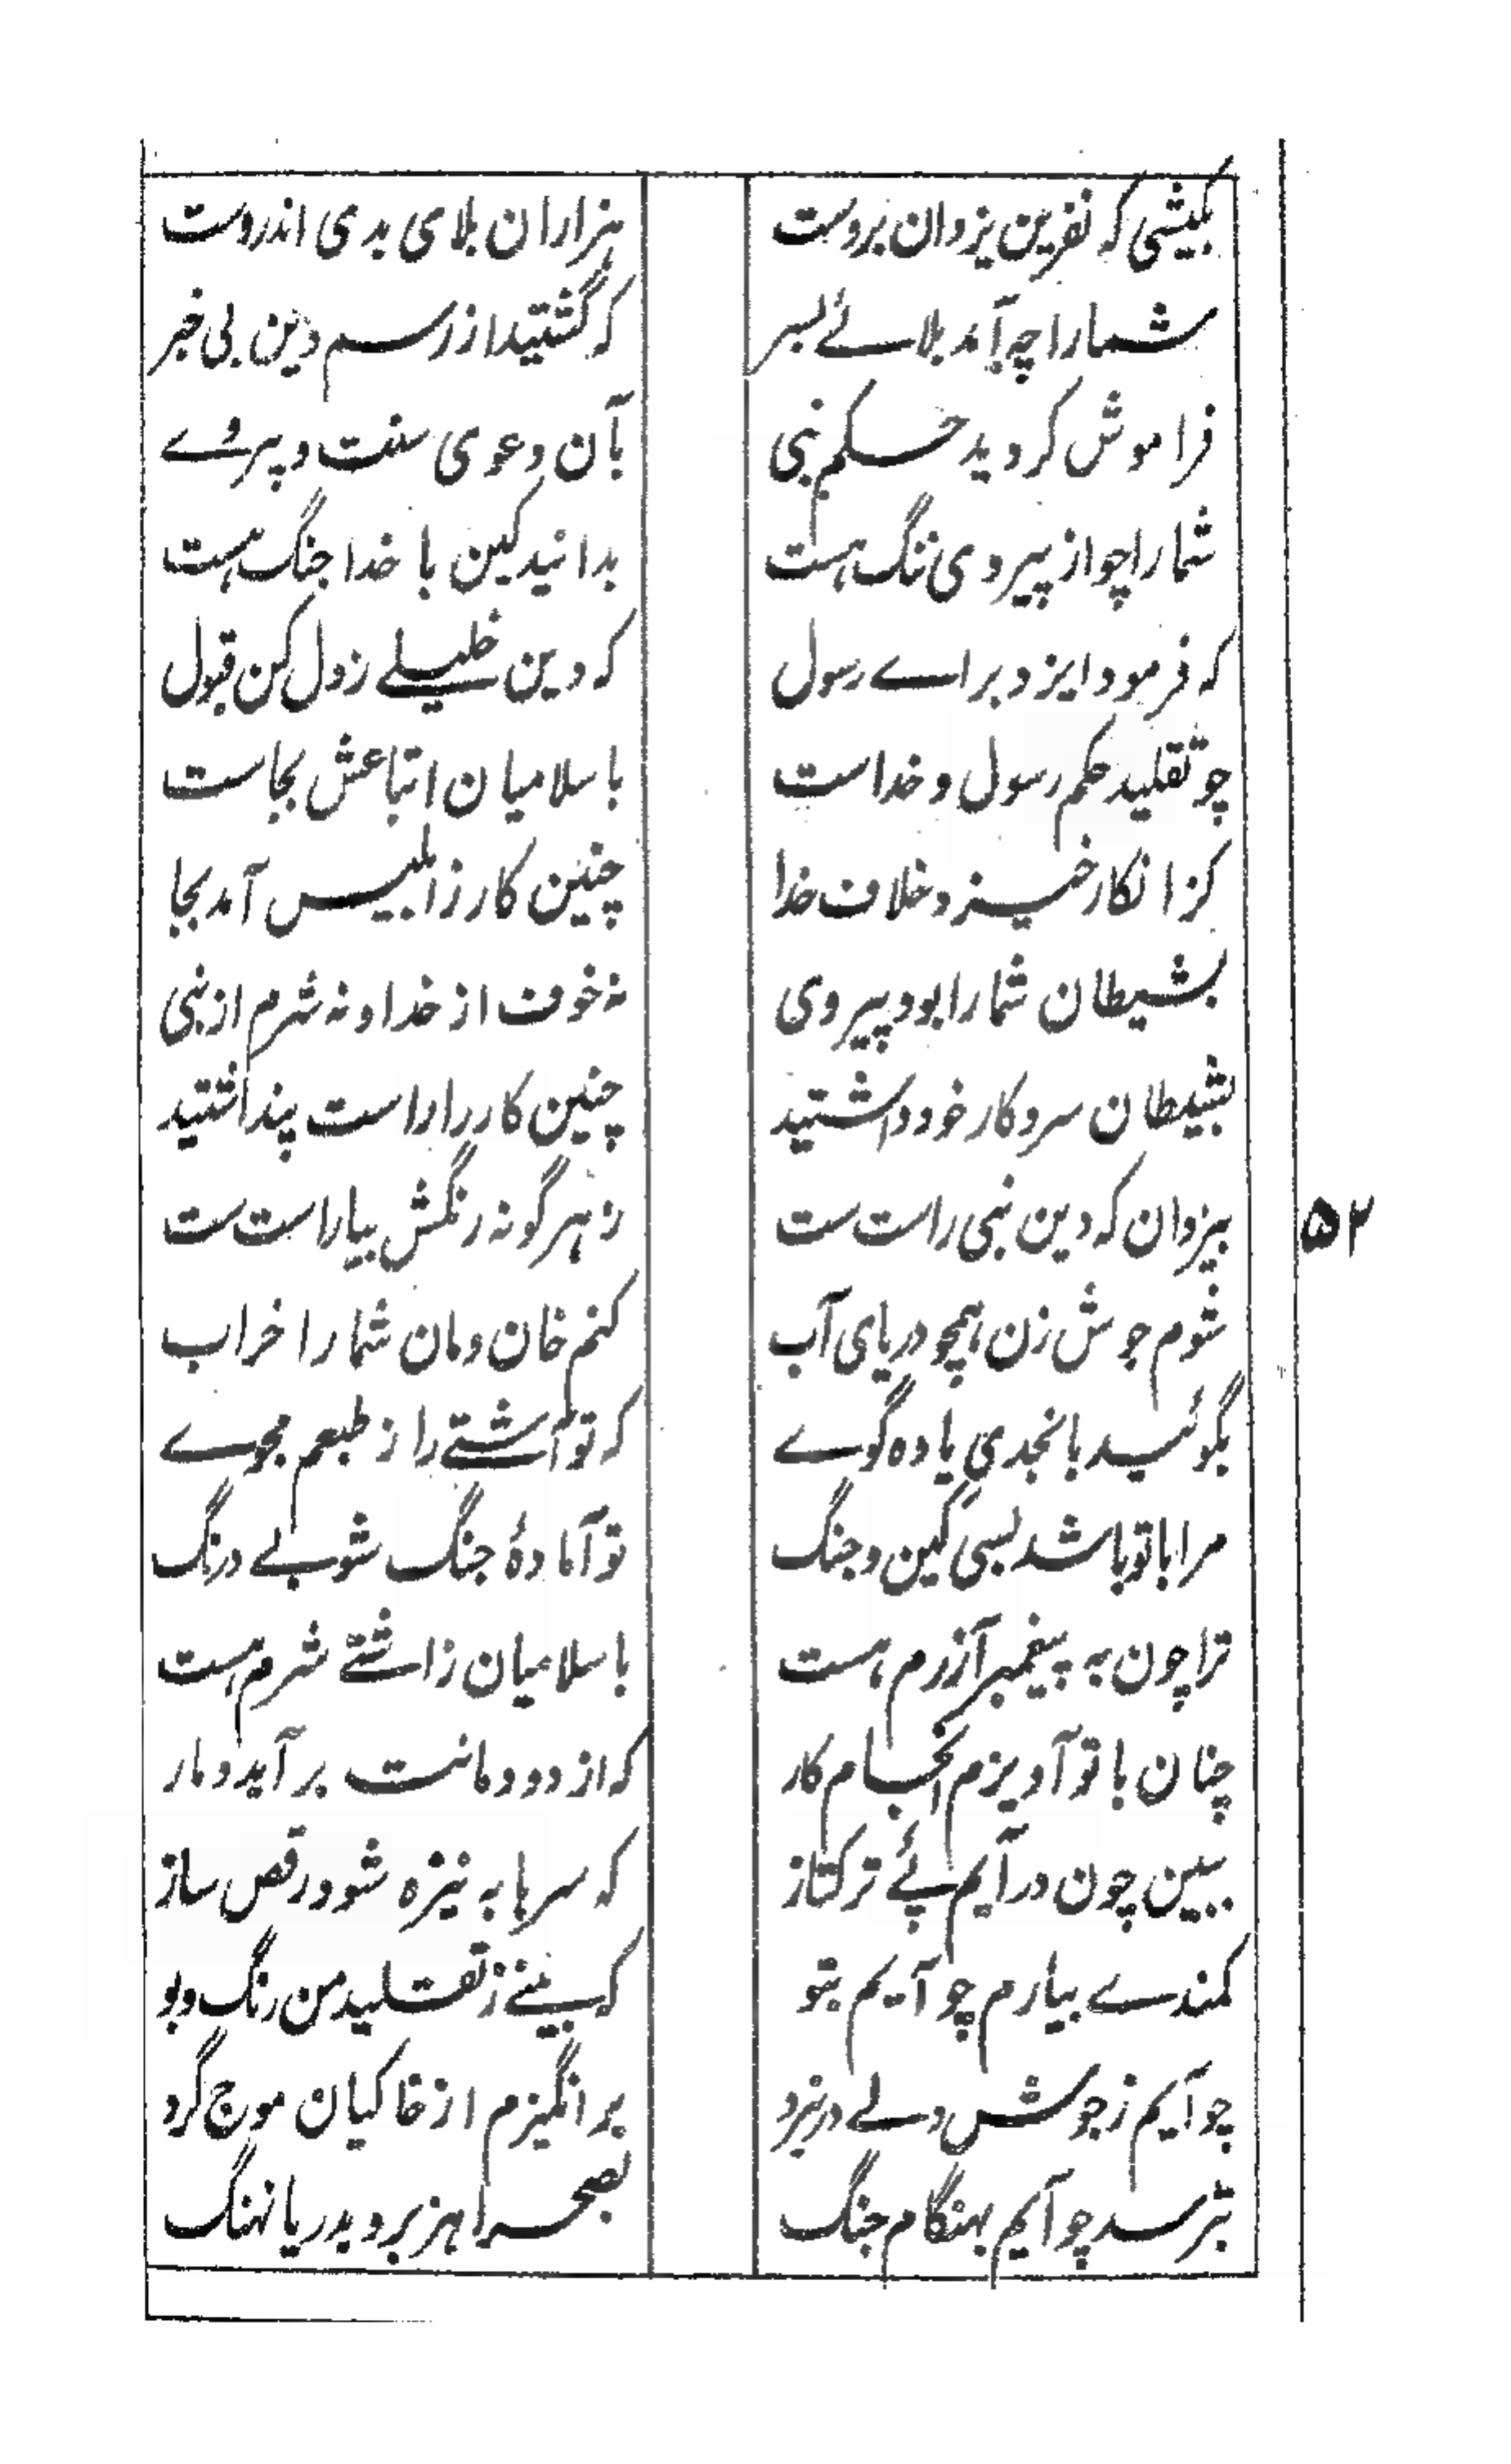 بکیشی که نفرین یزدان بروست هزاران بلای بدی اندروست
شما را چه آمد بلائے بسر که گشتید از رسم دین بی خبر
فراموش کردید حکم نبی بآن دعوی سنت و پیروے
شما را چو از پیروی ننگ هست بدانید کین با خدا جنگ هست
که فرمود ایزد براے رسول که دین خلیلے ز دل کن قبول
چو تقلید حکم رسول و خداست باسلامیان اتباعش بجاست
کز انکار خیزد خلاف خدا چنین کار ز ابلیس آمد بجا
بشیطان شما را بود پیروی نه خوف از خدا و نه شرم از نبی
بشیطان سر و کار خود داشتید چنین کار را راست پنداشتید
بیزدان که دین نبی راست ست ز هر گونه رنگش بیاراست ست
۵۲
شوم جوش زن همچو دریای آب کنم خان و مان شما را خراب
بگوئید با نجدی یاوه گوے که تو آشتے را ز طبعم مجوے
مرا با تو باشد بسی کین و جنگ تو آمادۀ جنگ شو بے درنگ
ترا چون به پیغمبر آزرم هست باسلامیان زاشتے شرم هست
چنان با تو آویزم انجام کار که از دودمانت برآید دمار
ببین چون در آیم پئے ترکتاز که سرها به نیزه شود رقص ساز
کمندے بیارم چو آیم بتو که بینے ز تقلید من رنگ و بو
چو آیم ز جوش دلے در نبرد بر انگیزم از خاکیان موج گرد
بترسد چو آیم بهنگام جنگ بصحرا هزبر و بدریا نهنگ